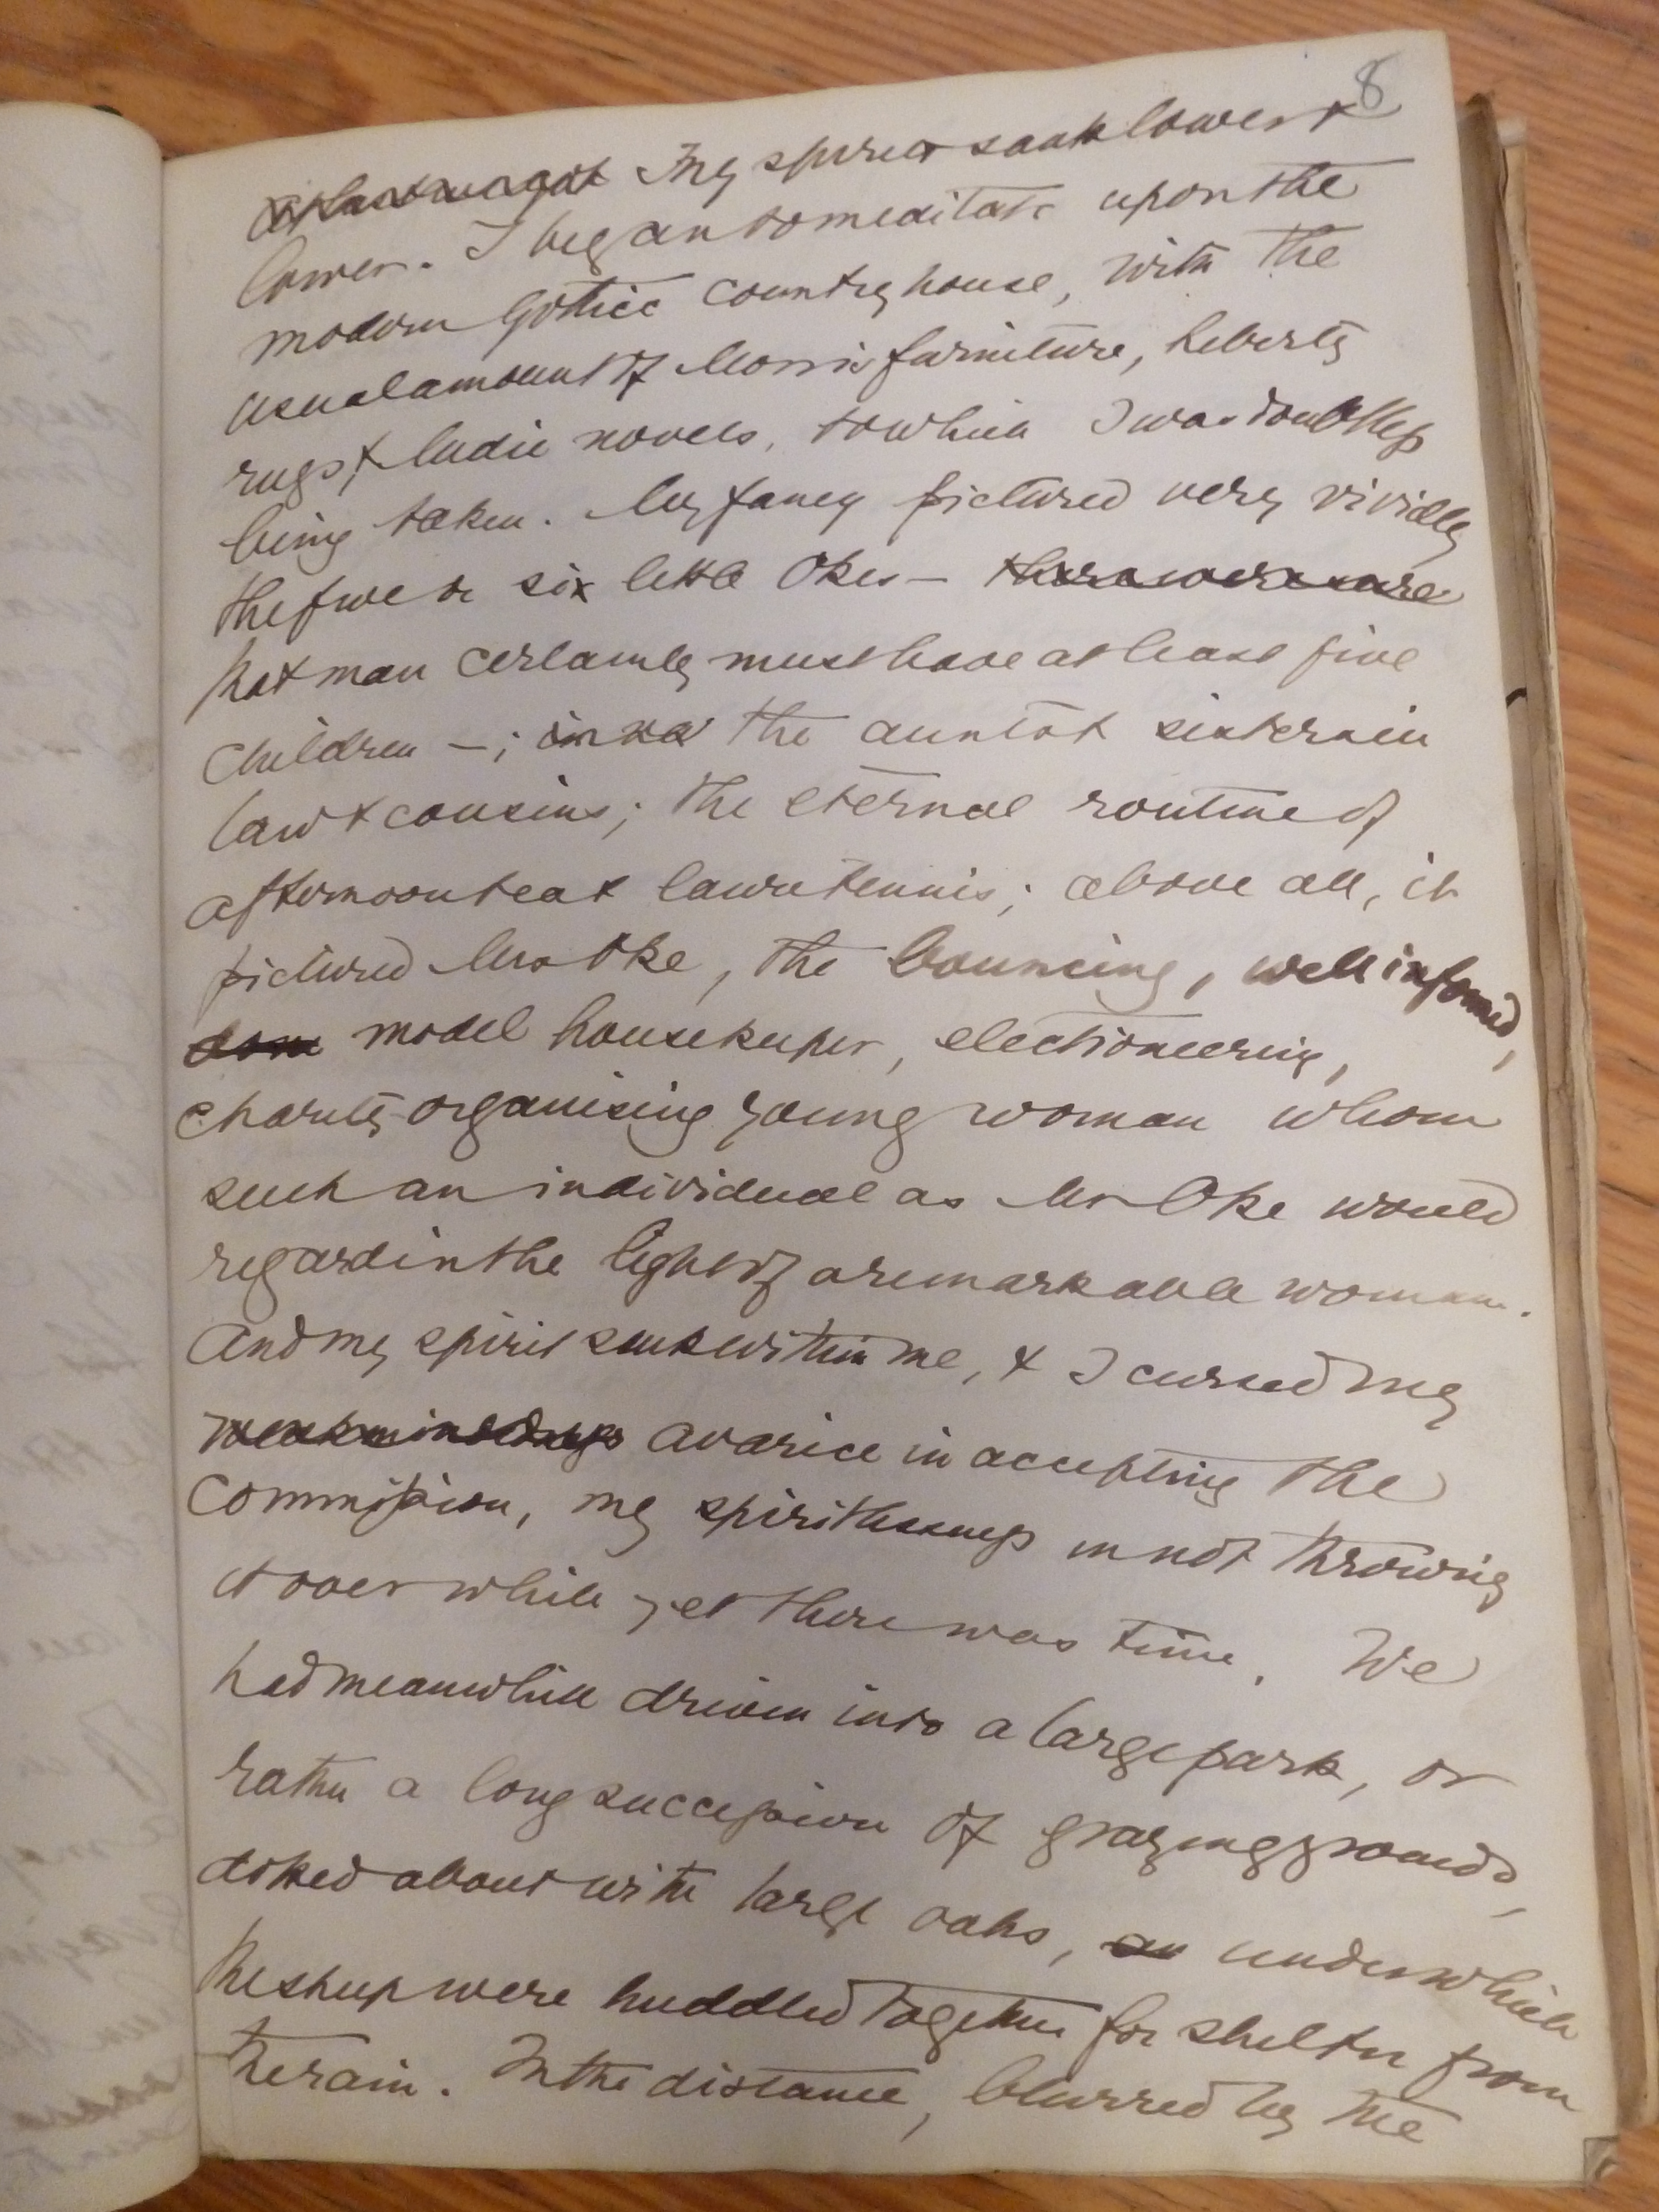 8
At last we got My spirits sank lower &
lower. I began to meditate upon the
modern Gothic country house, with the
usual amount of Morris furniture, Liberty
rugs, & Mudie novels, to which I was doubtless
being taken. My fancy pictured very vividly
the five or six little Okes — there were sure
that man certainly must have at least five
children —; the aunts & sisters in
law & cousins; the eternal routine of
afternoon tea & lawn tennis; above all, it
pictured Mrs Oke, the bouncing, well informed,
dom model housekeeper, electioneering,
charity-organising young woman whom
such an individual as Mr Oke would
regard in the light of a remarkable woman.
And my spirit sunk within me, & I cursed my
weakmindedness avarice in accepting the
commission, my spiritlessness in not throwing
it over while yet there was time. We
had meanwhile driven into a large park, or
rather a long succession of grazing grounds,
dotted about with large oaks, an under which
the sheep were huddled together for shelter from
the rain. In the distance, blurred by the